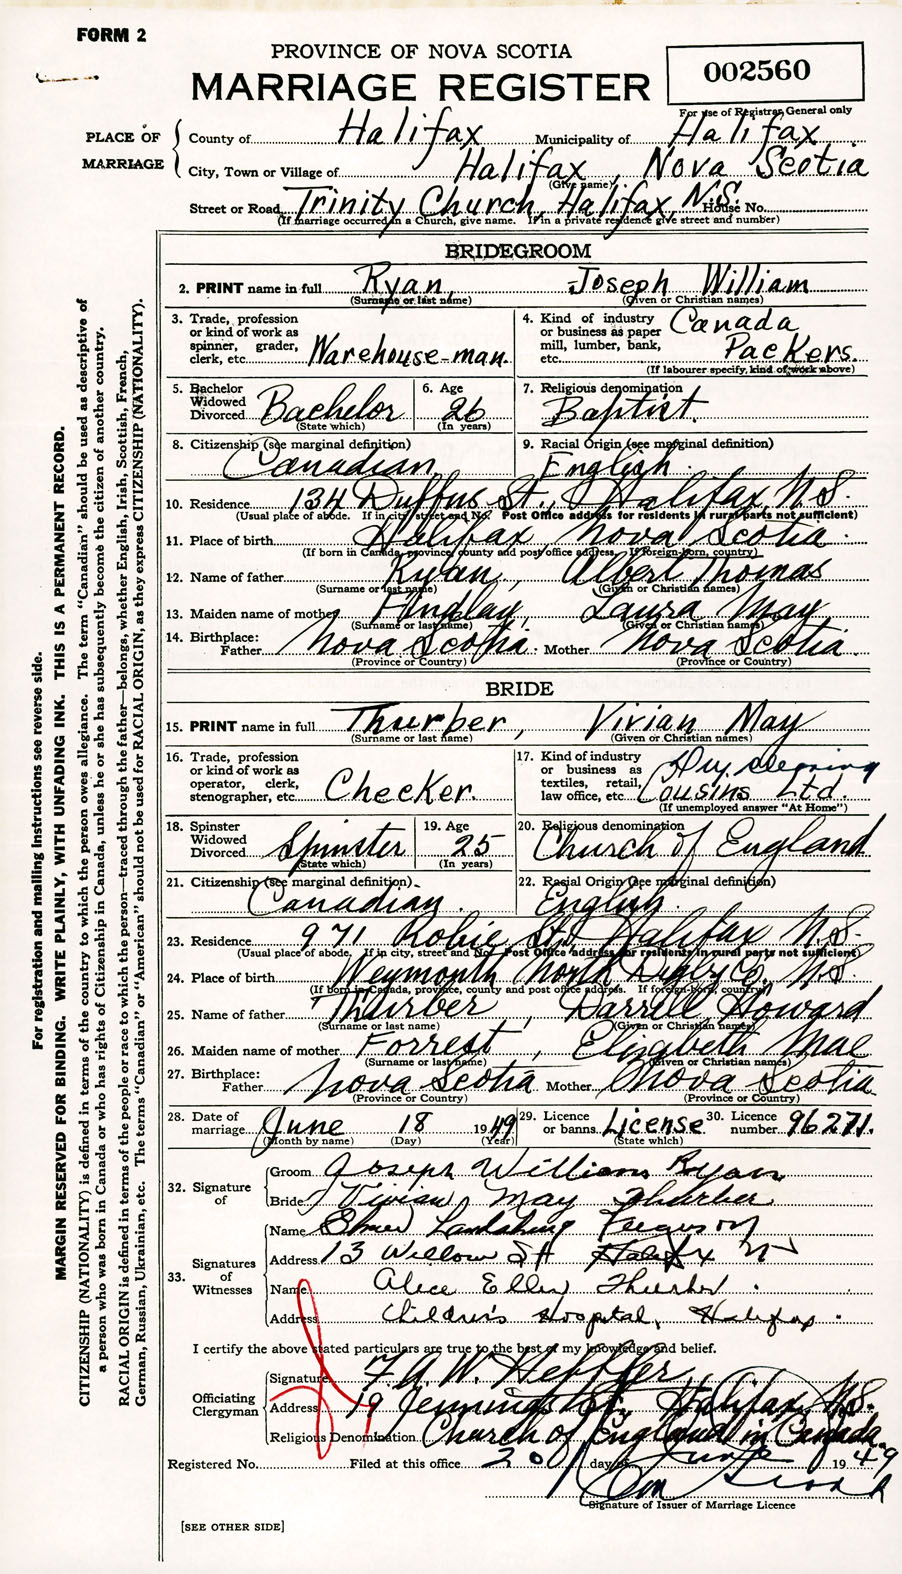 FORM 2
PROVINCE OF NOVA SCOTIA
MARRIAGE REGISTER
002560
For use of Registrar General only
PLACE OF MARRIAGE
County of Halifax Municipality of Halifax
City, Town or Village of Halifax, Nova Scotia
(Give name)
Street or Road Trinity Church, Halifax, N.S. House No.
(If marriage occurred in a Church, give name. If in a private residence give street and number)
BRIDEGROOM
2. PRINT name in full Ryan, Joseph William
(Surname or last name) (Given or Christian names)
3. Trade, profession or kind of work as spinner, grader, clerk, etc. Warehouse-man.
4. Kind of industry or business as paper mill, lumber, bank, etc. Canada Packers.
(If labourer specify, kind of work above)
5. Bachelor Widowed Divorced Bachelor (State which)
6. Age 26 (In years)
7. Religious denomination Baptist.
8. Citizenship (see marginal definition) Canadian
9. Racial Origin (see marginal definition) English.
10. Residence 134 Duffus St., Halifax N.S.
(Usual place of abode. If in city, street and No. Post Office address for residents in rural parts not sufficient)
11. Place of birth Halifax, Nova Scotia.
(If born in Canada, province, county and post office address. If foreign-born, country)
12. Name of father Ryan, Albert Thomas
(Surname or last name) (Given or Christian names)
13. Maiden name of mother Findlay, Laura May
(Surname or last name) (Given or Christian names)
14. Birthplace: Father Nova Scotia. Mother Nova Scotia.
(Province or Country) (Province or Country)
BRIDE
15. PRINT name in full Thurber, Vivian May
(Surname or last name) (Given or Christian names)
16. Trade, profession or kind of work as operator, clerk, stenographer, etc. Checker.
17. Kind of industry or business as textiles, retail, law office, etc. Dry cleaning Cousins Ltd.
(If unemployed answer "At Home")
18. Spinster Widowed Divorced Spinster (State which)
19. Age 25 (In years)
20. Religious denomination Church of England
21. Citizenship (see marginal definition) Canadian.
22. Racial Origin (see marginal definition) English.
23. Residence 971 Robie St., Halifax N.S.
(Usual place of abode. If in city, street and No. Post Office address for residents in rural parts not sufficient)
24. Place of birth Weymouth North Digby Co. N.S.
(If born in Canada, province, county and post office address. If foreign-born, country)
25. Name of father Thurber, Darrell Howard
(Surname or last name) (Given or Christian names)
26. Maiden name of mother Forrest, Elizabeth Mae
(Surname or last name) (Given or Christian names)
27. Birthplace: Father Nova Scotia Mother Nova Scotia.
(Province or Country) (Province or Country)
28. Date of marriage June 18 1949
(Month by name) (Day) (Year)
29. Licence or banns License (State which)
30. Licence number 96271.
32. Signature of
Groom Joseph William Ryan
Bride Vivian May Thurber
33. Signatures of Witnesses
Name Elmer Ferguson
Address 13 Willow St Halifax NS
Name Alice Ellen Thurber.
Address Children's Hospital, Halifax.
I certify the above stated particulars are true to the best of my knowledge and belief.
Officiating Clergyman
Signature F.A.W. Heffler
Address 19 Jennings St. Halifax, N.S.
Religious Denomination Church of England in Canada.
Registered No. Filed at this office 20 day of June 1949
Signature of Issuer of Marriage Licence
[SEE OTHER SIDE]
For registration and mailing instructions see reverse side.
MARGIN RESERVED FOR BINDING. WRITE PLAINLY, WITH UNFADING INK. THIS IS A PERMANENT RECORD.
CITIZENSHIP (NATIONALITY) is defined in terms of the country to which the person owes allegiance. The term "Canadian" should be used as descriptive of
a person who was born in Canada or who has rights of Citizenship in Canada, unless he or she has subsequently become the citizen of another country.
RACIAL ORIGIN is defined in terms of the people or race to which the person—traced through the father—belongs, whether English, Irish, Scottish, French,
German, Russian, Ukrainian, etc. The terms "Canadian" or "American" should not be used for RACIAL ORIGIN, as they express CITIZENSHIP (NATIONALITY).